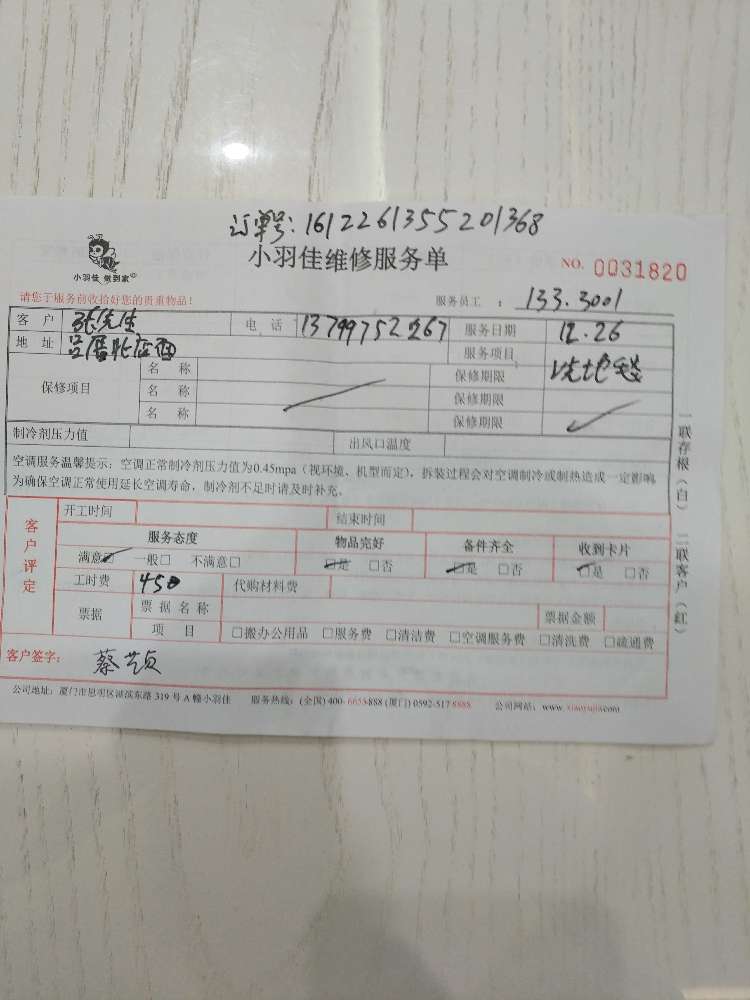 订单号: 1612261355201368
小羽佳 做到家
小羽佳维修服务单
NO. 0031820
请您于服务前收拾好您的贵重物品!
服务员工 : 133.3001
客 户 张先生 电 话 13799752267 服务日期 12.26
地 址 服务项目 洗地毯
保修项目 名 称 保修期限
名 称 保修期限
名 称 保修期限
制冷剂压力值 出风口温度
空调服务温馨提示: 空调正常制冷剂压力值为0.45mpa (视环境、机型而定), 拆装过程会对空调制冷或制热造成一定影响
为确保空调正常使用延长空调寿命, 制冷剂不足时请及时补充。
客户评定
开工时间 结束时间
服务态度 物品完好 备件齐全 收到卡片
满意☑ 一般□ 不满意□ ☑是 □否 ☑是 □否 ☑是 □否
工时费 450 代购材料费
票据 票据名称 票据金额
项 目 □搬办公用品 □服务费 □清洁费 □空调服务费 □清洗费 □疏通费
客户签字:
公司地址: 厦门市思明区湖滨东路 319 号 A 幢小羽佳 服务热线: (全国) 400-6655-888 (厦门) 0592-517 8888 公司网站: www.xiaoyujia.com
一联存根(白) 二联客户(红)